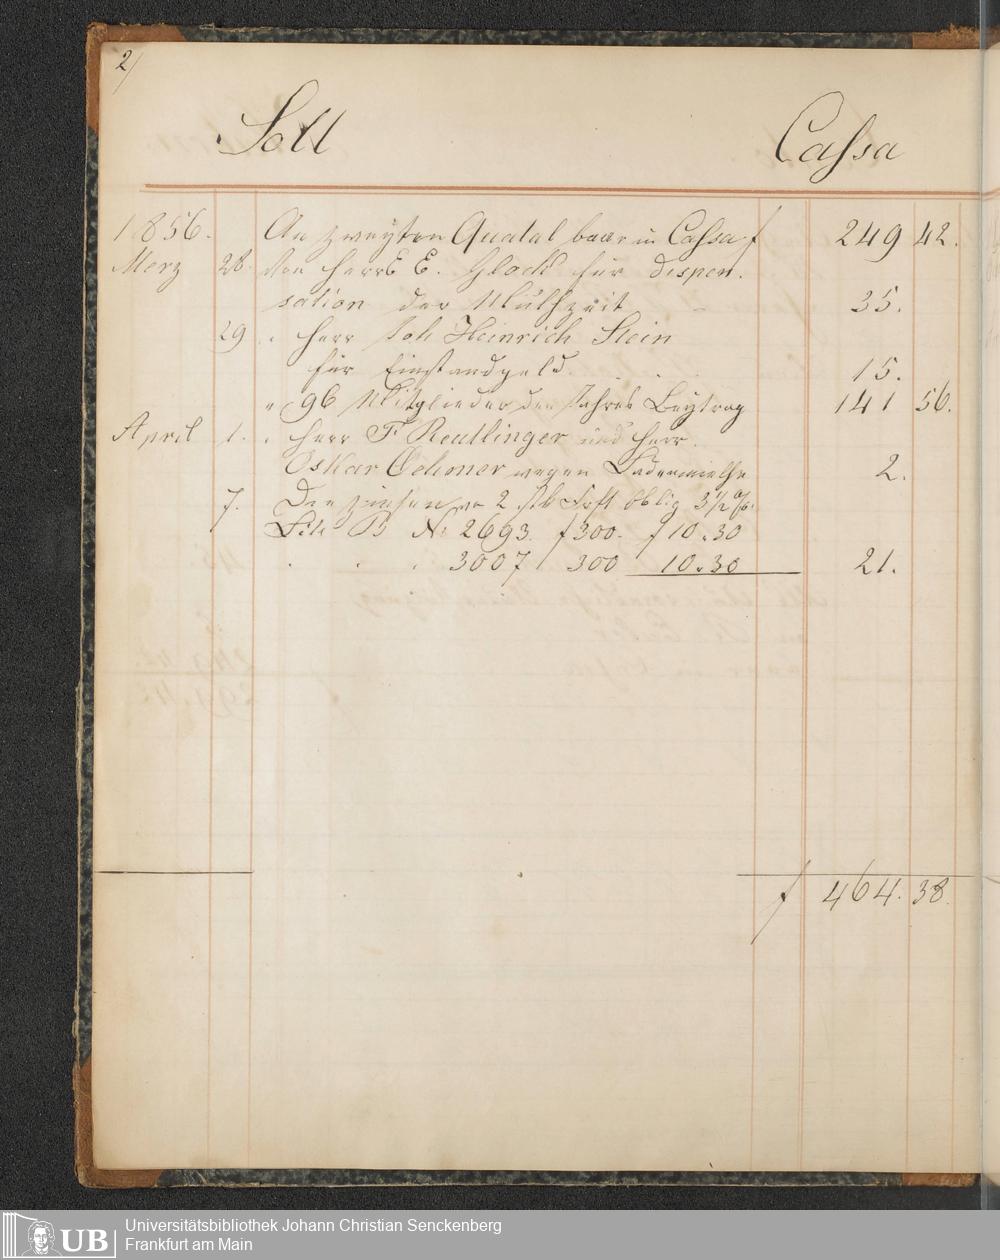 2/
Soll Cassa
1856. An zweyten Quatal baar in Cassa f 249 42.
Merz 28. Von Herrn E. Glock für Dispen-
sation der Mühlzeit 35.
29 " Herr Joh Heinrich Stein
für Einstandgeld . . . 15.
" 96 Mitglieder den Jahres Beytrag 141 56.
April 1. " Herr F Reutlinger und Herr
Oskar Oehoner wegen Ladenmiethe 2.
7. Die Zinsen von 2 stk Frft Oblig 3 1/2 %
Litt B No 2693. f 300. f 10.30
" " " 3007 300 10.30 21.
f 464. 38.
Universitätsbibliothek Johann Christian Senckenberg
UB Frankfurt am Main